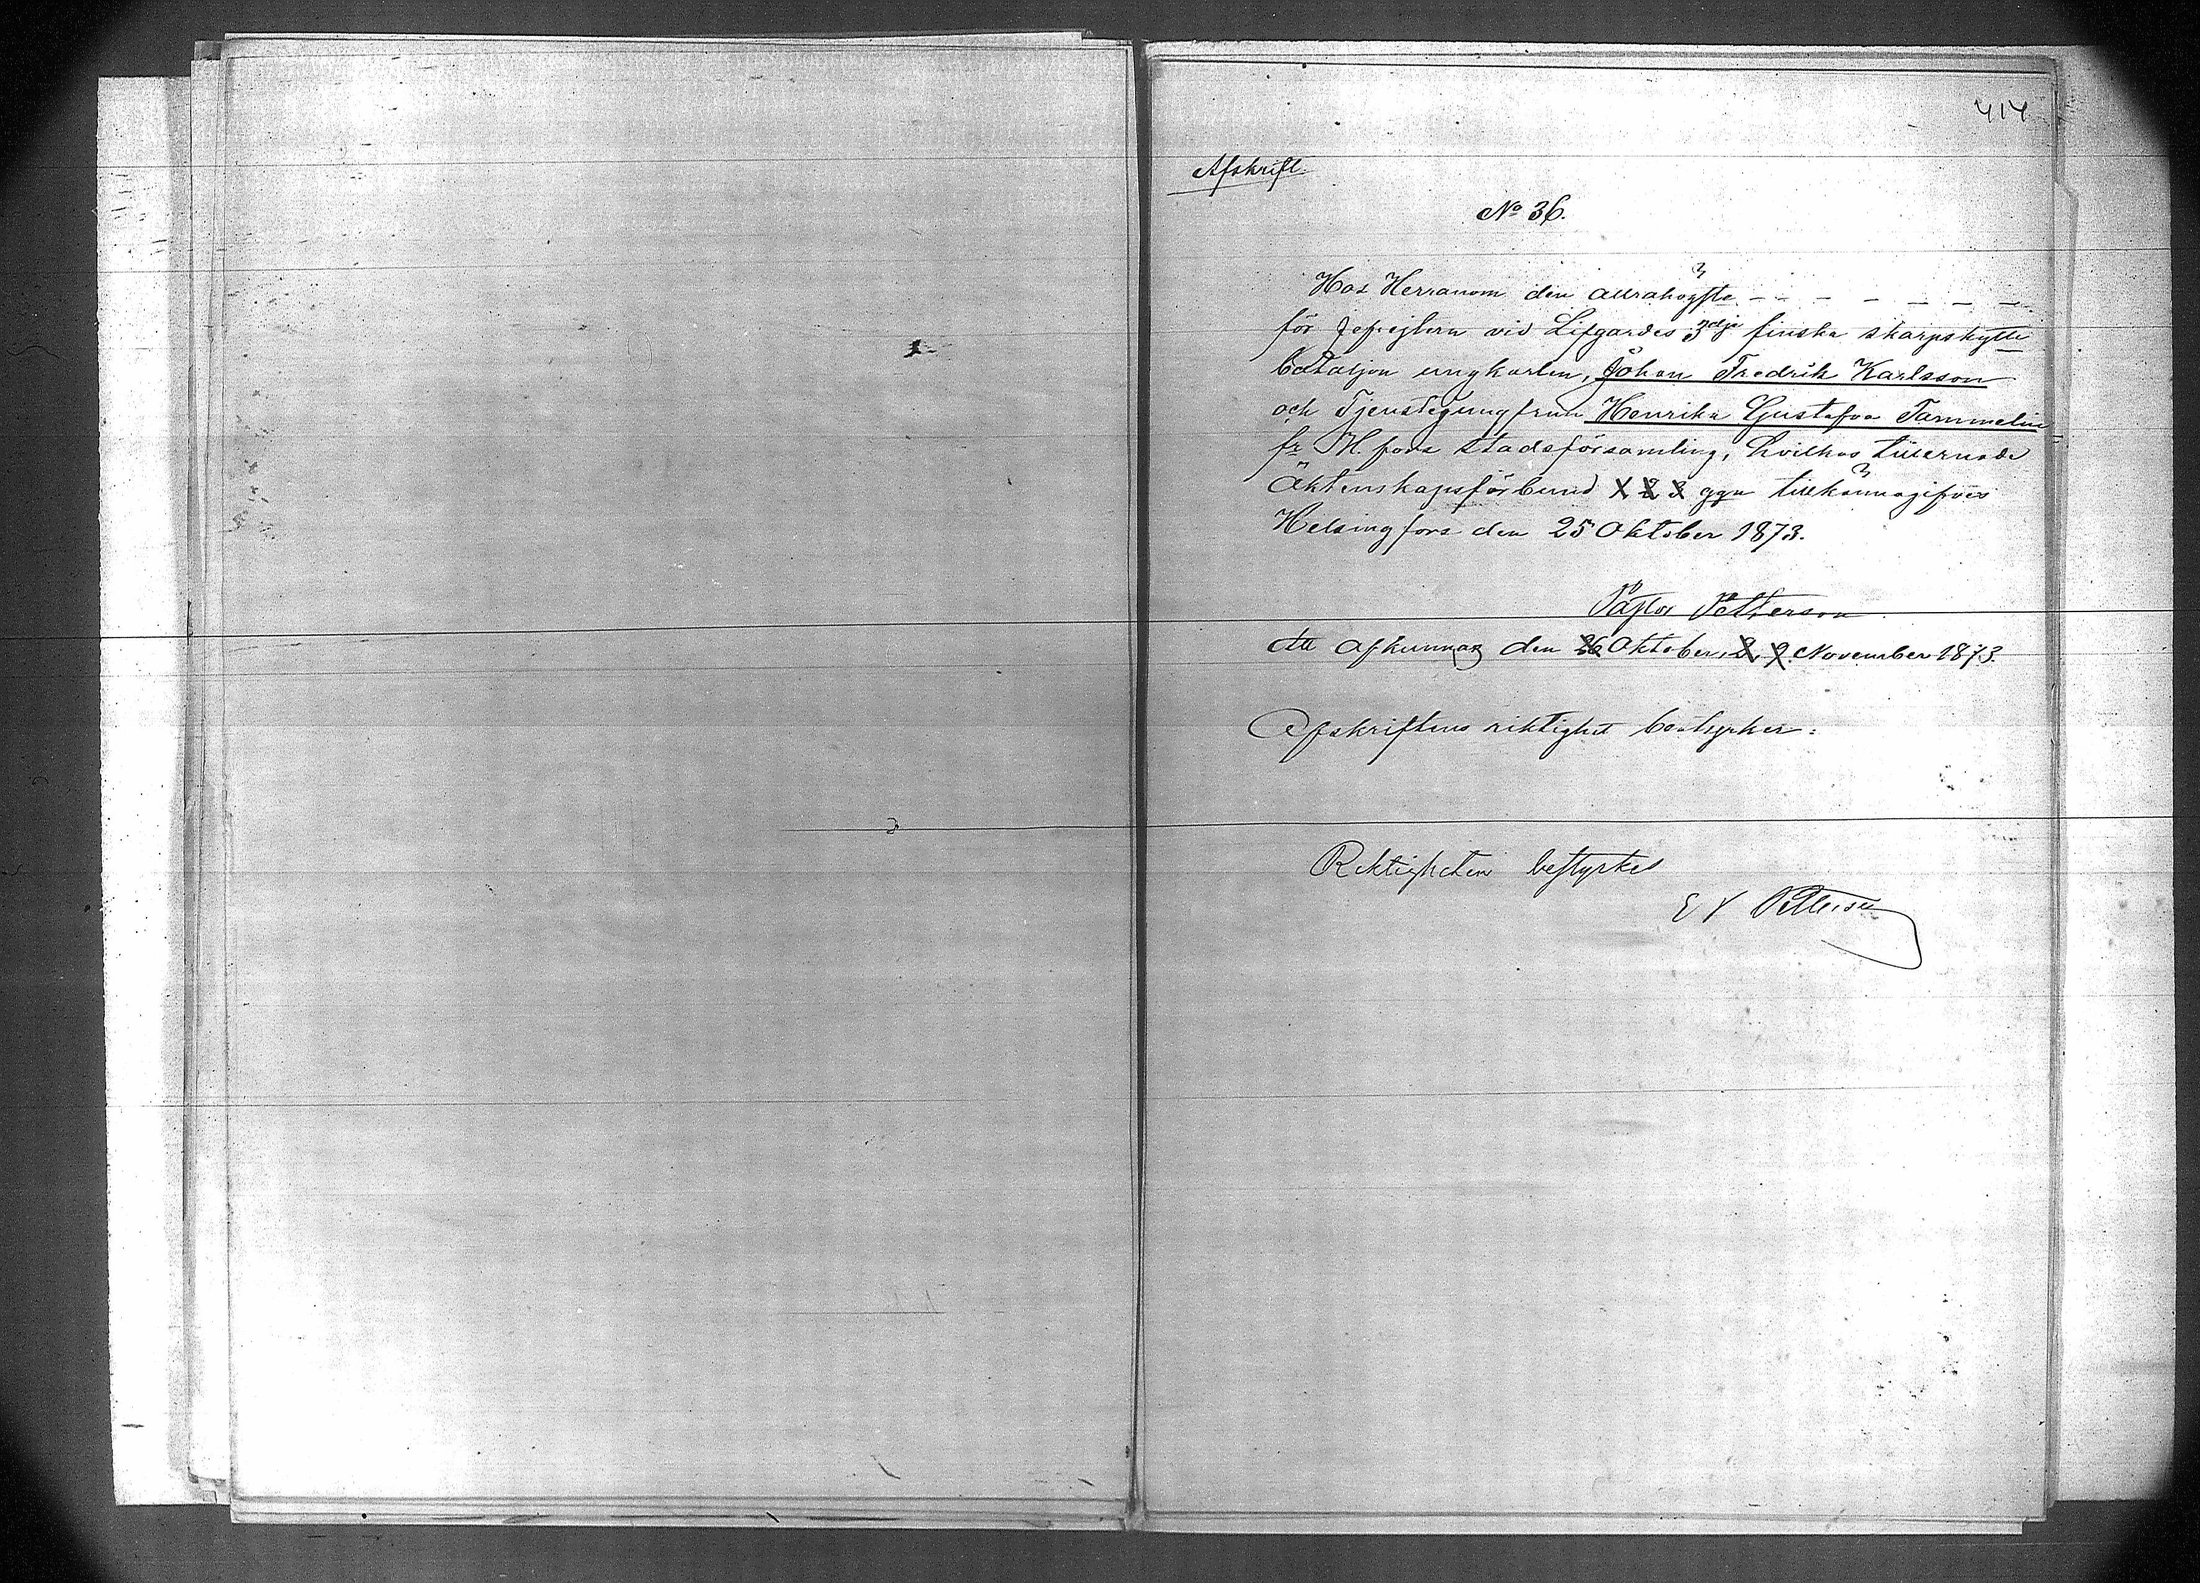 414
Afskrift
No 36.
Hos Herranom den allrahögste
för Jefrejtern vid Lifgardes 3dje finska skarpskytte
bataljon ungkarlen, Johan Fredrik Karlsson
och Tjenstegungfrun Henrika Gustafva Tammelin
fr H. fors stadsförsamling, hvilkas tillernade
Äktenskapsförbund 1 2 3 ggn tillkännagifves
Helsingfors den 25 Oktober 1873.
Pastor Petterson
Att afkunnas den 26 Oktober, 2, 9. November 1873.
Afskriftens riktighet bestyrker:
Riktigheten bestyrkes
E V Petterson